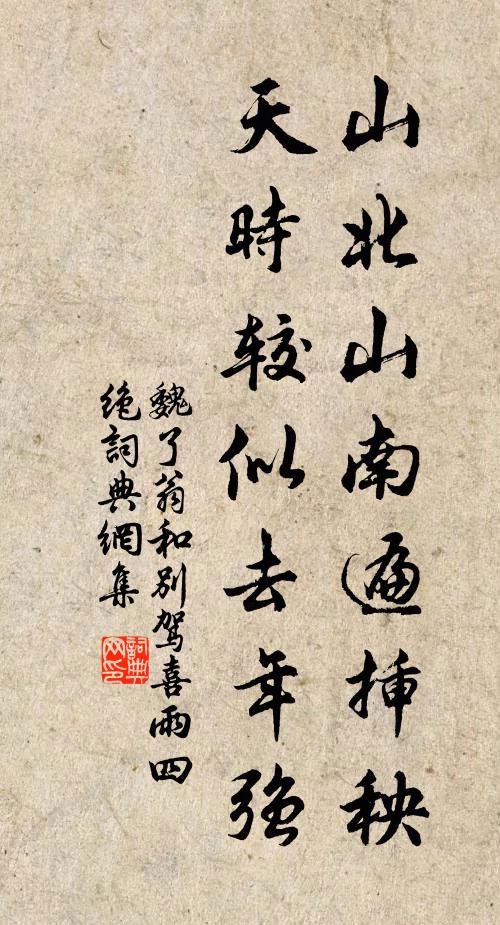 山北山南遍挿秧
天時較似去年强
魏了翁和別駕喜雨四
絶詞典網集
詞典
网印